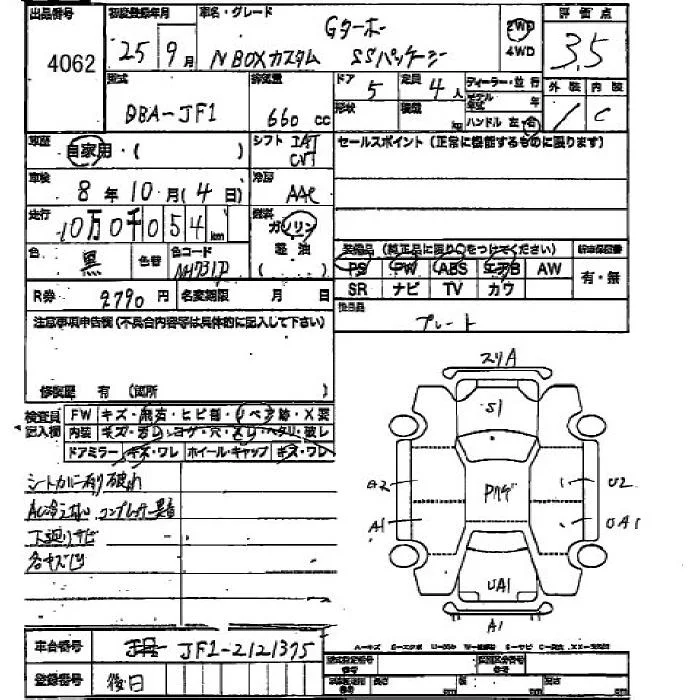 出品番号 4062
初度登録年月 25年9月
車名・グレード Gターボ
N BOXカスタム SSパッケージ
2WD
4WD
評価点 3.5
型式 DBA-JF1
排気量 660 cc
ドア 5 定員 4人
形状 積載 kg
ディーラー・並行
モデル年式 年
ハンドル 左・右
外装 内装 C
車歴 自家用・( )
シフト IAT CVT
セールスポイント(正常に機能するものに限ります)
車検 8年10月(4日)
冷房 AAC
走行 10万0千054km
燃料 ガソリン 軽油 ( )
色 黒 色替 色コード NH731P
装備品(純正品に限り○をつけてください)
新車保証書
PS PW ABS エアB AW 有・無
SR ナビ TV カワ
R券 9790円 名変期限 月 日
後日品 プレート
注意事項申告欄(不具合内容等は具体的に記入して下さい)
修復歴 有(箇所 )
検査員記入欄
FW キズ・飛石・ヒビ割・リペア跡・X要
内装 キズ・ヨゲ・穴・スリ・ヘタリ・破レ
ドアミラー キズ・ワレ ホイール・キャップ キズ・ワレ
シートカバー有り 破れ
AC冷えない コンプレッサー異音
下廻りサビ
各キズ凹
スリA
S1
A2
A1
Pハゲ
U2
UA1
UA1
A1
車台番号 JF1-2121375
登録番号 後日
A=キズ
型式指定番号 参考
類別区分番号 参考
参考 長さ cm 幅 cm 高さ cm